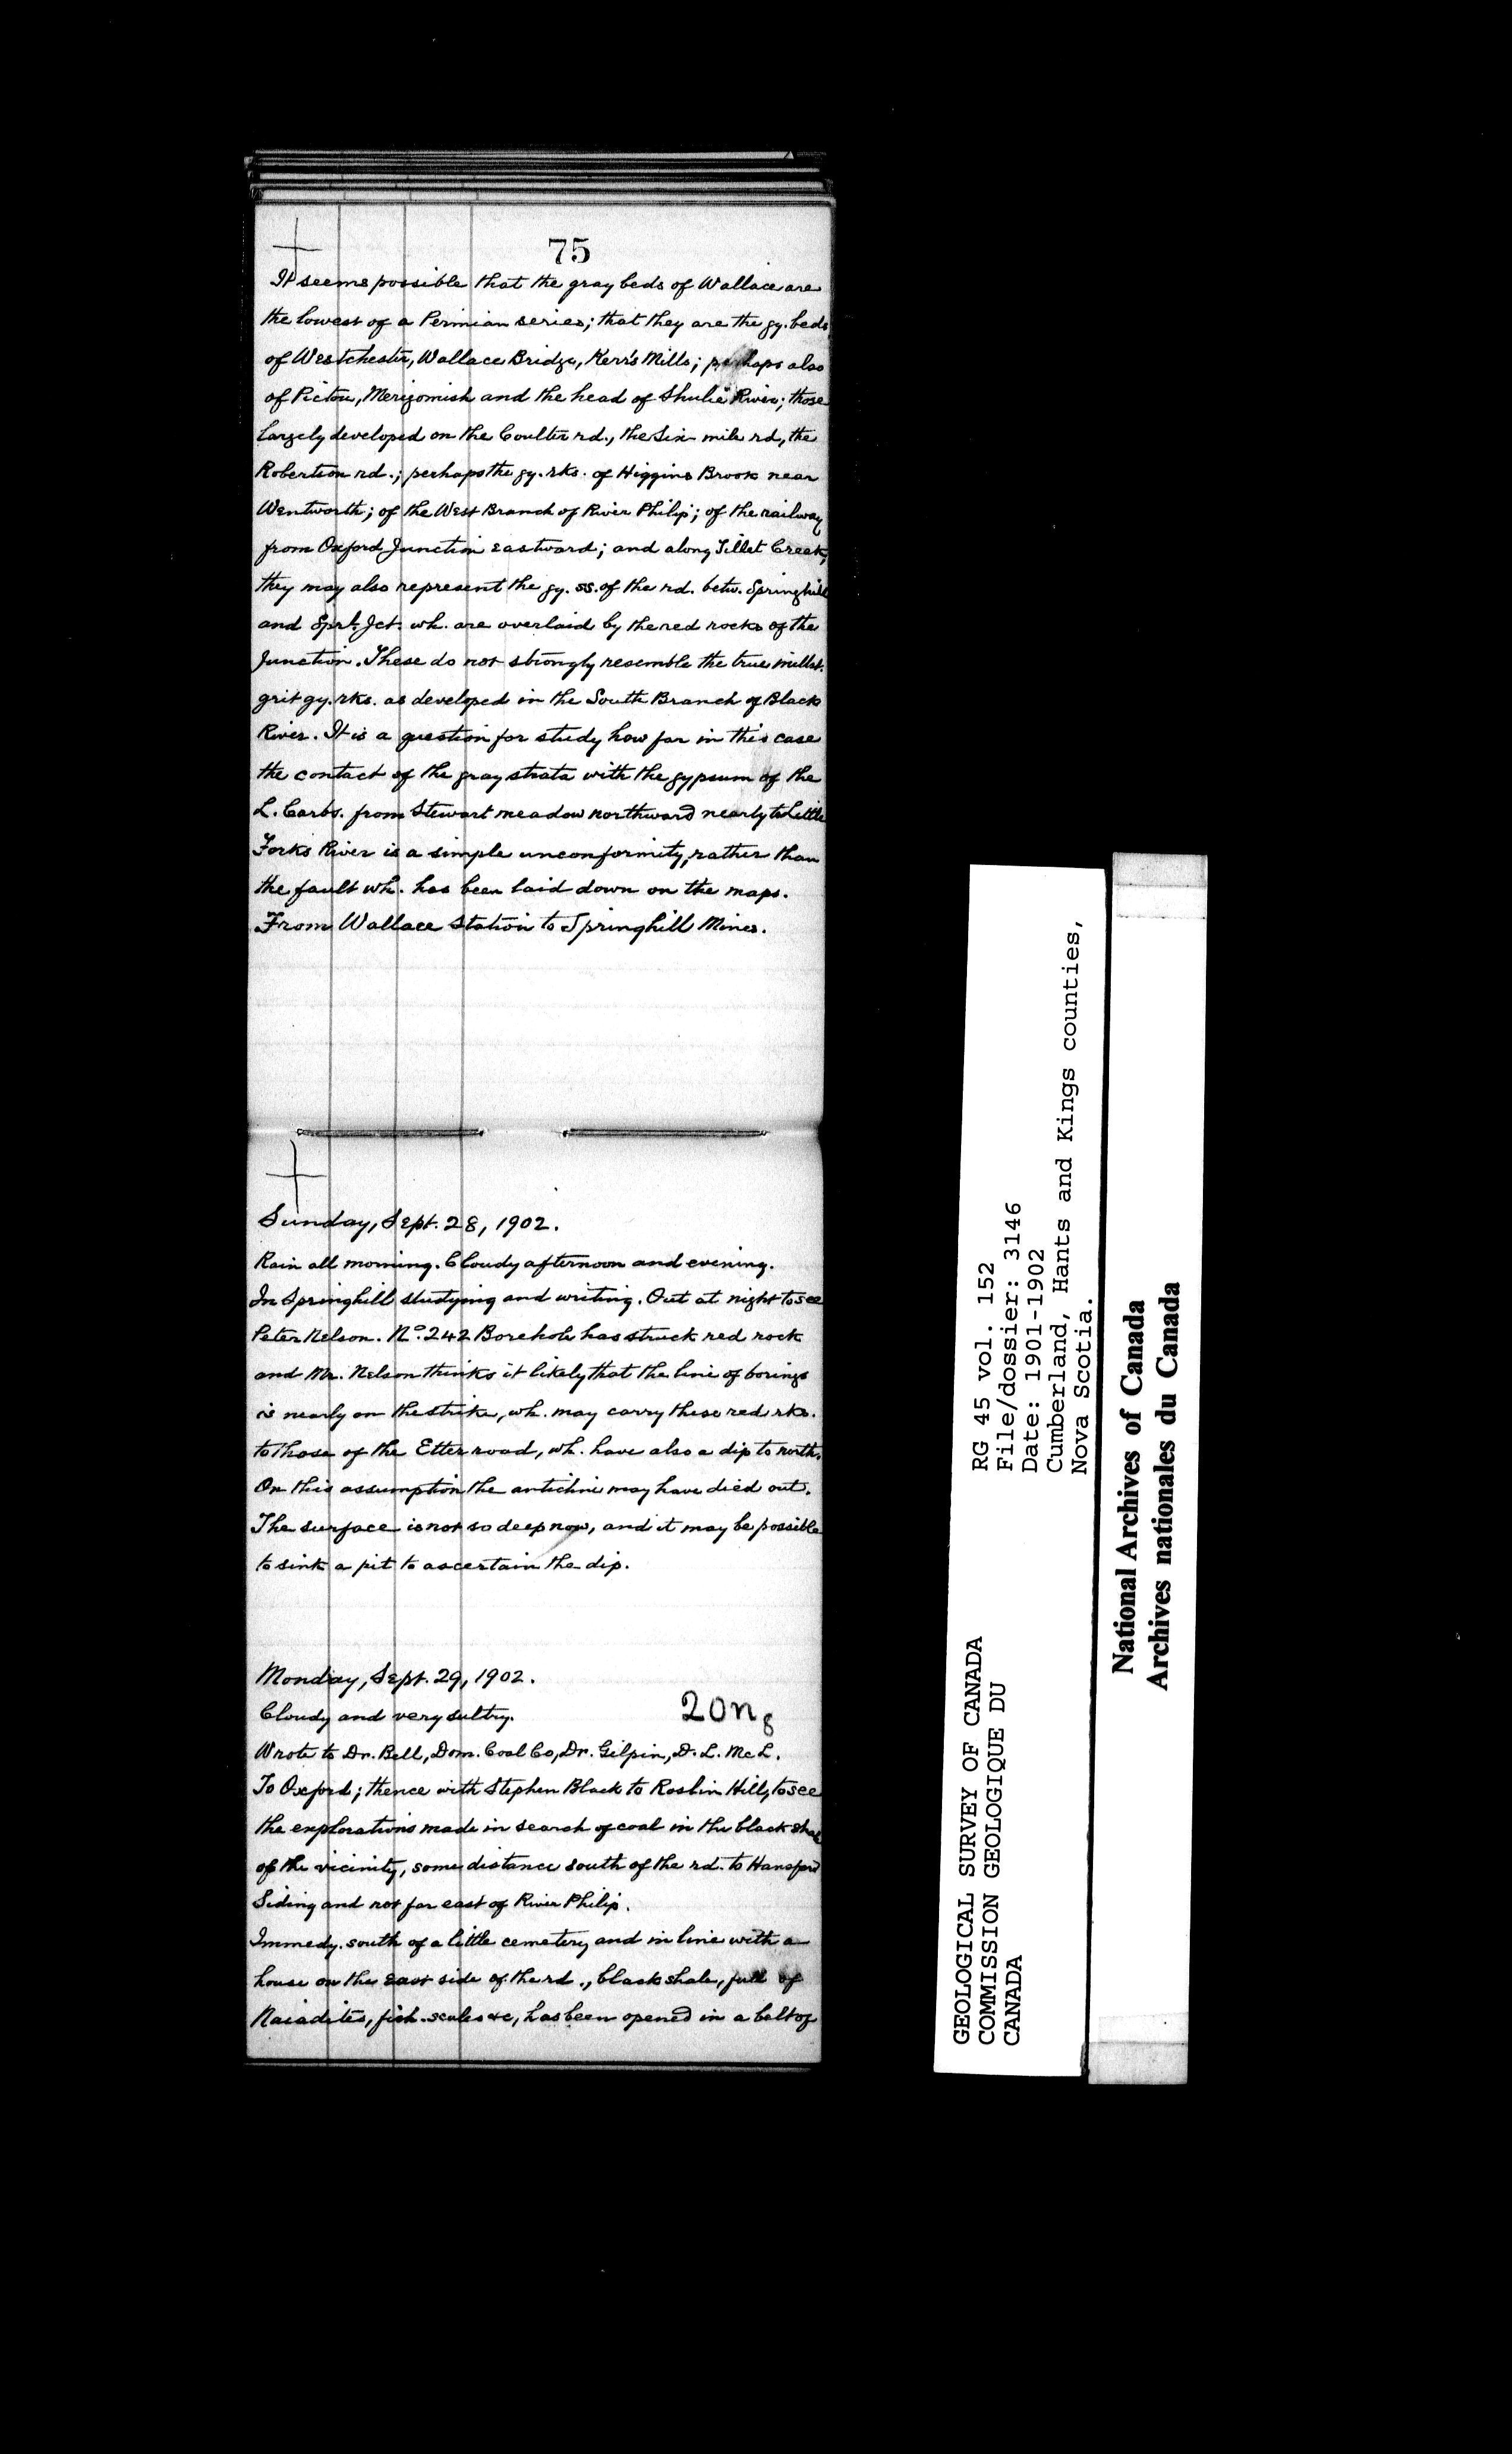 75
It seems possible that the gray beds of Wallace are
the lowest of a Permian series; that they are the gy. beds
of Westchester, Wallace Bridge, Kerr's Mills; perhaps also
of Pictou, Merigomish and the head of Shulie River; those
largely developed on the Coulter rd., the Six mile rd, the
Robertson rd.; perhaps the gy. rks. of Higgins Brook near
Wentworth; of the West Branch of River Philip; of the railway
from Oxford Junction eastward; and along Tillet Creek;
they may also represent the gy. ss. of the rd. betw. Springhill
and Jct. wh. are overlaid by the red rocks of the
Junction. These do not strongly resemble the true millst.
grit gy. rks. as developed in the South Branch of Black
River. It is a question for study how far in this case
the contact of the gray strata with the gypsum of the
L. Carbs. from Stewart meadow northward nearly to Little
Forks River is a simple unconformity, rather than
the fault wh. has been laid down on the maps.
From Wallace Station to Springhill Mines.
Sunday, Sept. 28, 1902.
Rain all morning. Cloudy afternoon and evening.
In Springhill studying and writing. Out at night to see
Peter Nelson. No. 242 Borehole has struck red rock
and Mr. Nelson thinks it likely that the line of borings
is nearly on the strike, wh. may carry these red rks.
to those of the Etter road, wh. have also a dip to north.
On this assumption the anticline may have died out.
The surface is not so deep now, and it may be possible
to sink a pit to ascertain the dip.
Monday, Sept. 29, 1902.
Cloudy and very sultry.
20n8
Wrote to Dr. Bell, Dom. Coal Co, Dr. Gilpin, D. L. McL.
To Oxford; thence with Stephen Black to Roslin Hill, to see
the explorations made in search of coal in the black shale
of the vicinity, some distance south of the rd. to Hansford
Siding and not far east of River Philip.
Immedy. south of a little cemetery and in line with a
house on the east side of the rd., black shale, full of
Naiadites, fish-scales &c, has been opened in a belt of
GEOLOGICAL SURVEY OF CANADA
COMMISSION GEOLOGIQUE DU
CANADA
RG 45 vol. 152
File/dossier: 3146
Date: 1901-1902
Cumberland, Hants and Kings counties,
Nova Scotia.
National Archives of Canada
Archives nationales du Canada